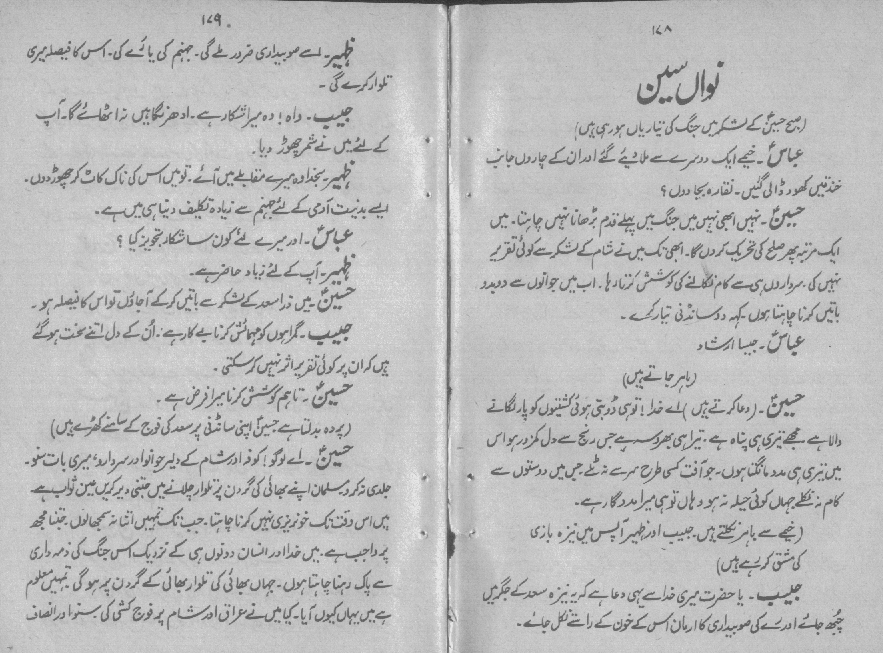 ۱۷۸
نواں سین
(صبح حسینؑ کے لشکر میں جنگ کی تیاریاں ہو رہی ہیں)
عباسؑ۔ خیمے ایک دوسرے سے ملا دیئے گئے اور ان کے چاروں جانب
خندقیں کھود ڈالی گئیں۔ نقارہ بجا دوں؟
حسینؑ۔ نہیں ابھی نہیں میں جنگ میں پہلے قدم بڑھانا نہیں چاہتا۔ میں
ایک مرتبہ پھر صلح کی تحریک کروں گا۔ ابھی تک میں نے شام کے لشکر سے کوئی تقریر
نہیں کی۔ سرداروں ہی سے کام نکالنے کی کوشش کرتا رہا۔ اب میں جوانوں سے دوبدو
باتیں کرنا چاہتا ہوں۔ کہہ دو سانڈنی تیار کرے۔
عباسؑ۔ جیسا ارشاد
(باہر جاتے ہیں)
حسینؑ۔ (دعا کرتے ہیں) اے خدا! تو ہی ڈوبتی ہوئی کشتیوں کو پار لگانے
والا ہے۔ مجھے تیری ہی پناہ ہے۔ تیرا ہی بھروسہ ہے جس رنج سے دل کمزور ہو اس
میں تیری ہی مدد مانگتا ہوں۔ جو آفت کسی طرح سر سے نہ ٹلے جس میں دوستوں سے
کام نہ نکلے جہاں کوئی حیلہ نہ ہو وہاں تو ہی میرا مددگار ہے۔
(خیمے سے باہر نکلتے ہیں۔ حبیب اور ظہیر آپس میں نیزہ بازی
کی مشق کر رہے ہیں)
حبیب۔ یا حضرت میری خدا سے یہی دعا ہے کہ یہ نیزہ سعد کے جگر میں
چبھ جائے اور رے کی صوبیداری کا ارمان اس کے خون کے راستے نکل جائے۔
۱۷۹
ظہیر۔ اسے صوبیداری ضرور ملے گی۔ جہنم کی یا رے کی۔ اس کا فیصلہ میری
تلوار کرے گی۔
حبیب۔ واہ! وہ میرا شکار ہے۔ ادھر نگاہیں نہ اٹھائے گا۔ آپ
کے لئے میں نے شمر چھوڑ دیا۔
ظہیر۔ بخدا وہ میرے مقابلے میں آئے۔ تو میں اس کی ناک کاٹ کر چھوڑ دوں۔
ایسے بدنیت آدمی کے لئے جہنم سے زیادہ تکلیف دنیا ہی میں ہے۔
عباسؑ۔ اور میرے لئے کون سا شکار تجویز کیا؟
ظہیر۔ آپ کے لئے زیاد حاضر ہے۔
حسینؑ۔ میں ذرا سعد کے لشکر سے باتیں کر کے آ جاؤں تو اس کا فیصلہ ہو۔
حبیب۔ گمراہوں کو فہمائش کرنا بے کار ہے۔ ان کے دل اتنے سخت ہو گئے
ہیں کہ ان پر کوئی تقریر اثر نہیں کر سکتی۔
حسینؑ۔ تاہم کوشش کرنا میرا فرض ہے۔
(پردہ بدلتا ہے حسینؑ اپنی سانڈنی پر سعد کی فوج کے سامنے کھڑے ہیں)
حسینؑ۔ اے لوگو! کوفہ اور شام کے دلیر جوانو اور سردارو، میری بات سنو۔
جلدی نہ کرو۔ مسلمان اپنے بھائی کی گردن پر تلوار چلانے میں جتنی دیر کریں عین ثواب ہے
میں اس وقت تک خونریزی نہیں کرنا چاہتا۔ جب تک تمہیں اتنا نہ سمجھا لوں۔ جتنا مجھ
پر واجب ہے۔ میں خدا اور انسان دونوں ہی کے نزدیک اس جنگ کی ذمہ داری
سے پاک رہنا چاہتا ہوں۔ جہاں بھائی کی تلوار بھائی کے گردن پر ہو گی۔ تمہیں معلوم
ہے میں یہاں کیوں آیا۔ کیا میں نے عراق اور شام پر فوج کشی کی سنو اور انصاف